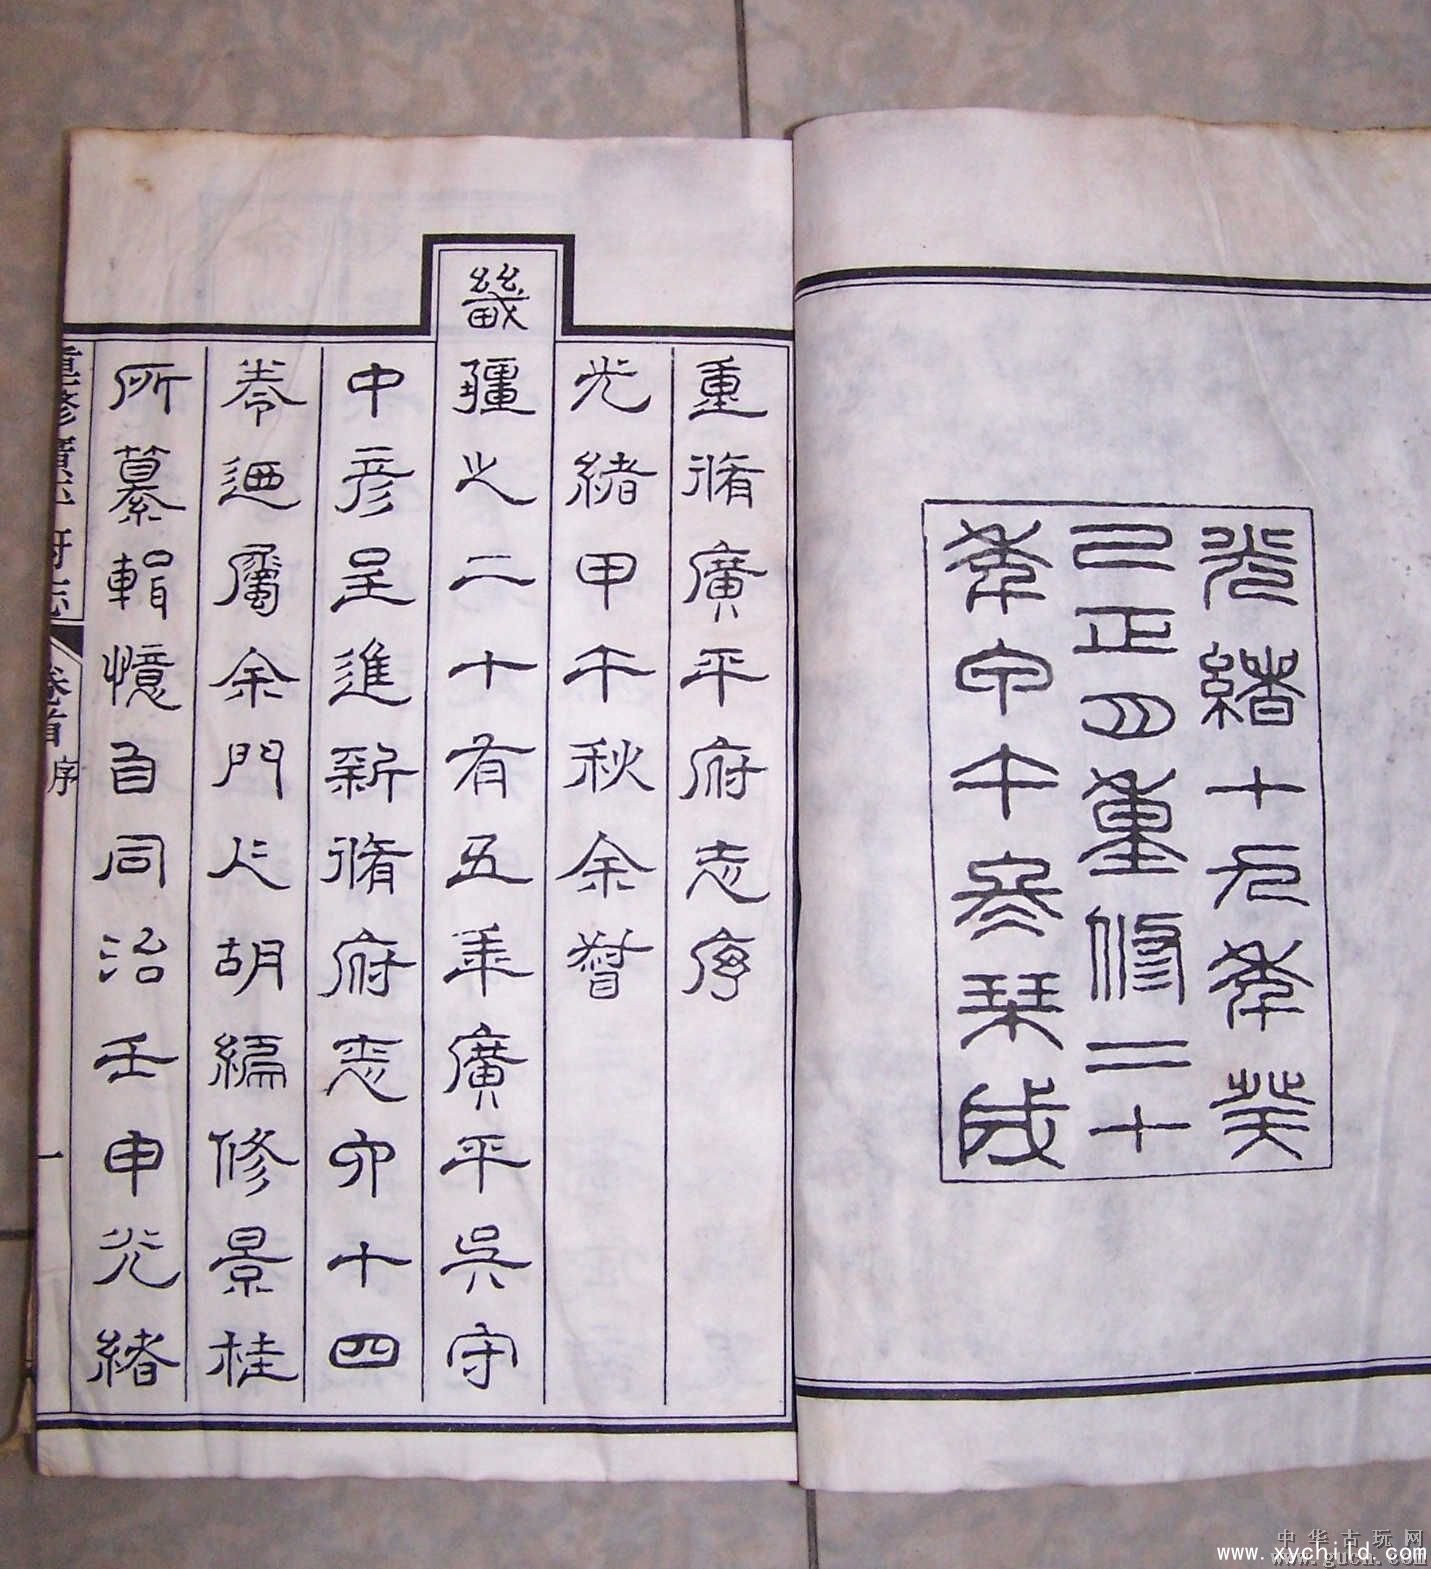 光緒十九秊癸
巳正月重修二十
秊甲午冬栞成
重脩廣平府志序
光緒甲午秋余督
畿疆之二十有五年廣平吳守
中彥呈進新脩府志六十四
卷迺屬余門人胡編修景桂
所纂輯憶自同治壬申光緒
重修廣平府志 卷首 序 一
中华古玩网
www.xychild.com
www.gucn.com